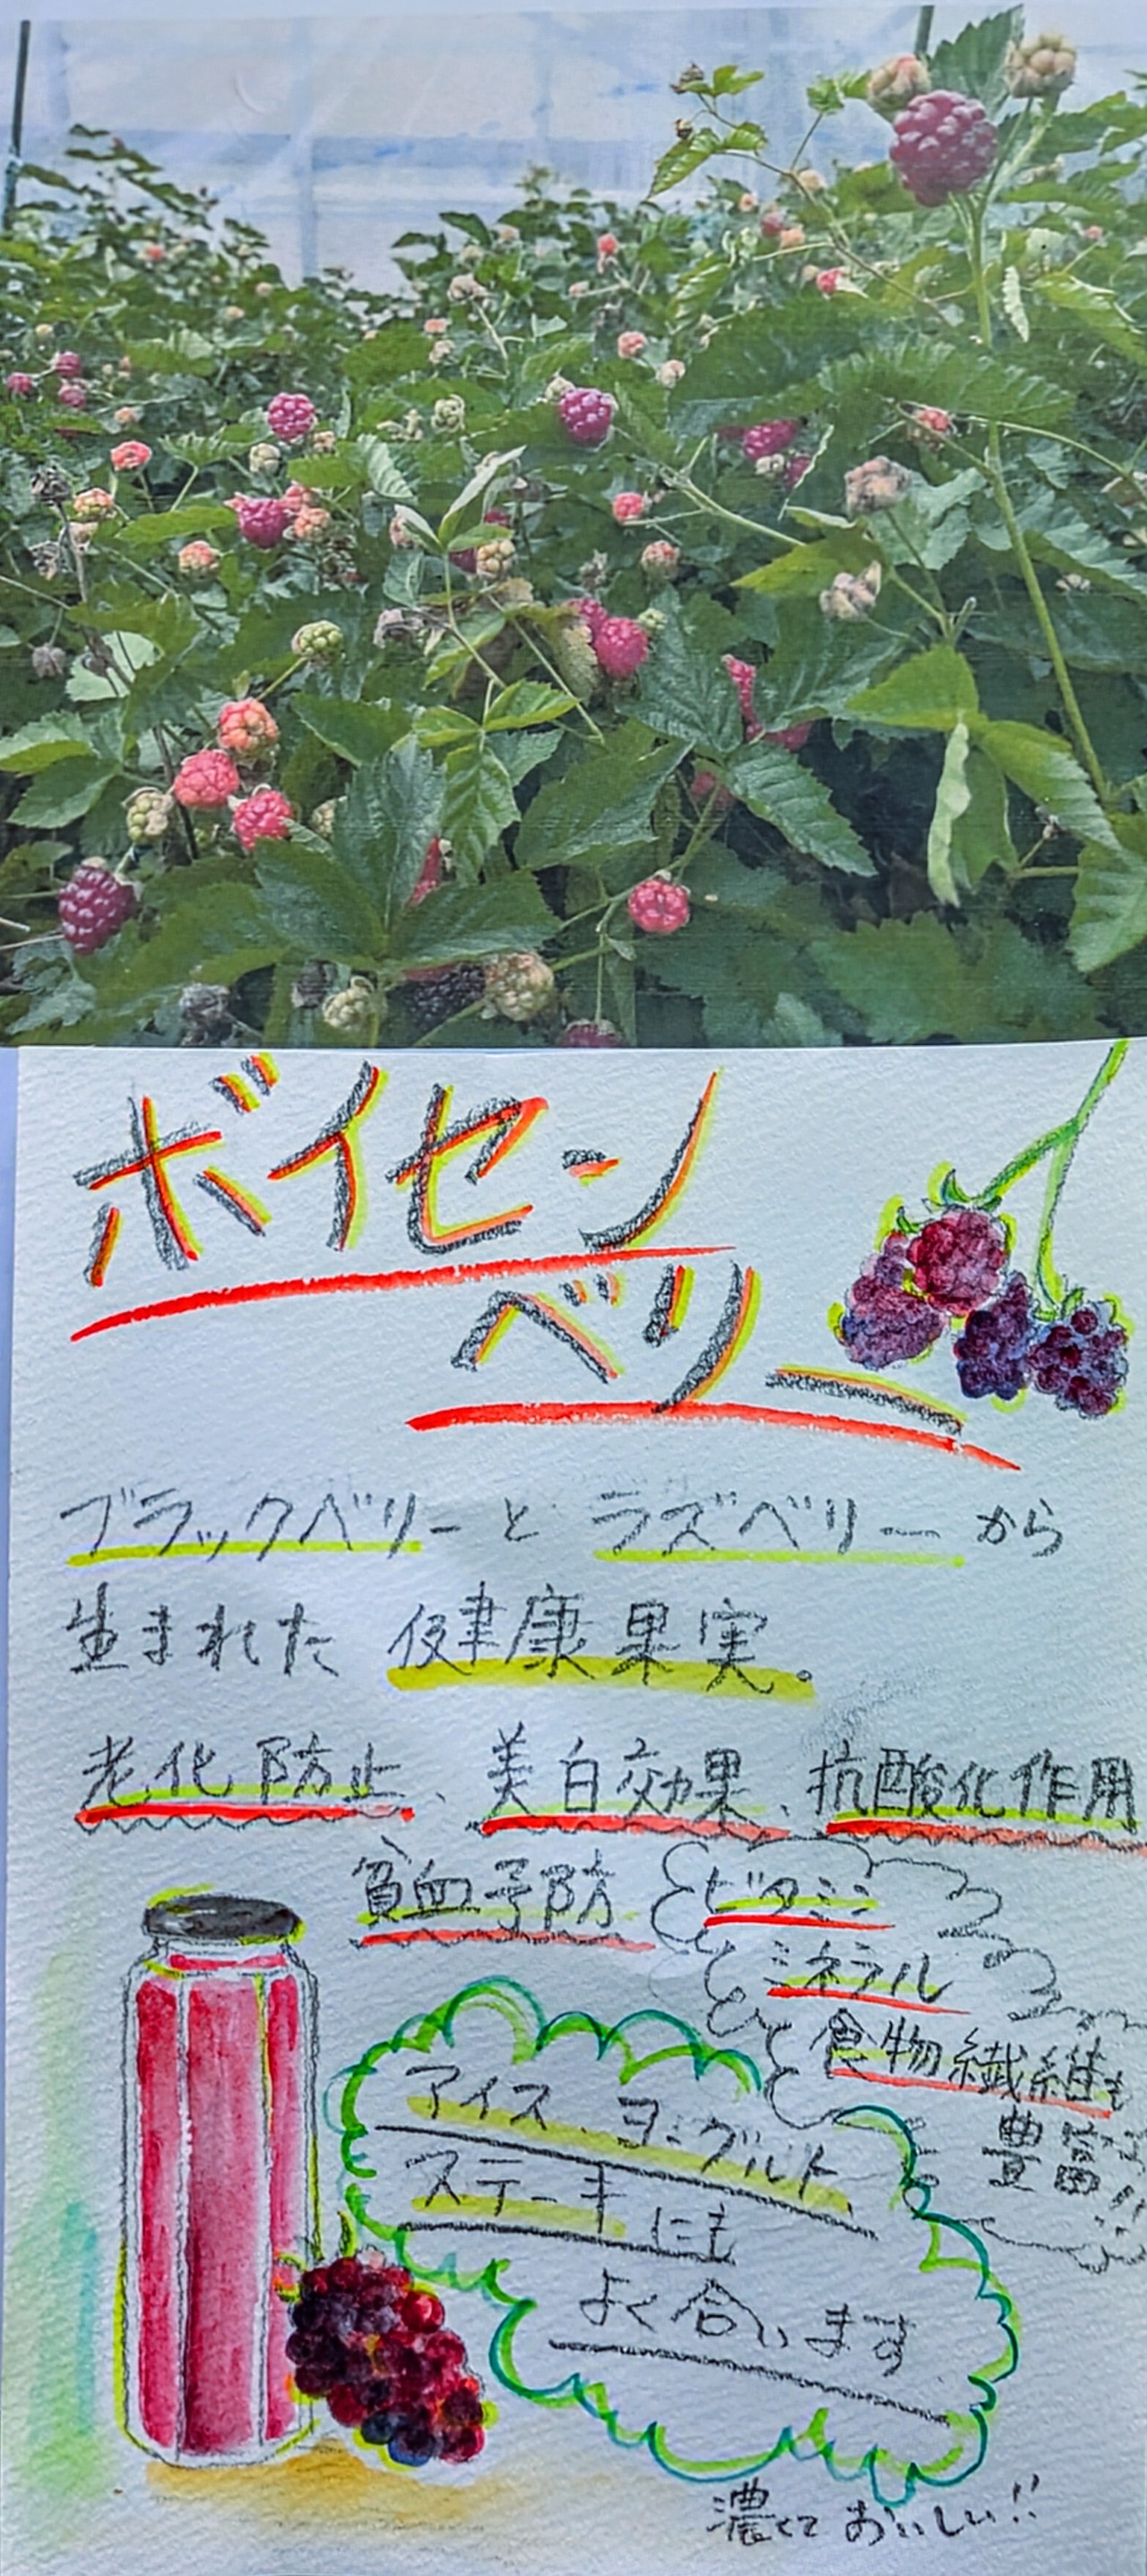 ボイセン
ベリー
ブラックベリーと ラズベリーから
生まれた 健康果実。
老化防止、美白効果、抗酸化作用
貧血予防
ビタミン
ミネラル
食物繊維も
豊富!!
アイス、ヨーグルト、
ステーキにも
よく合います
濃くておいしい!!